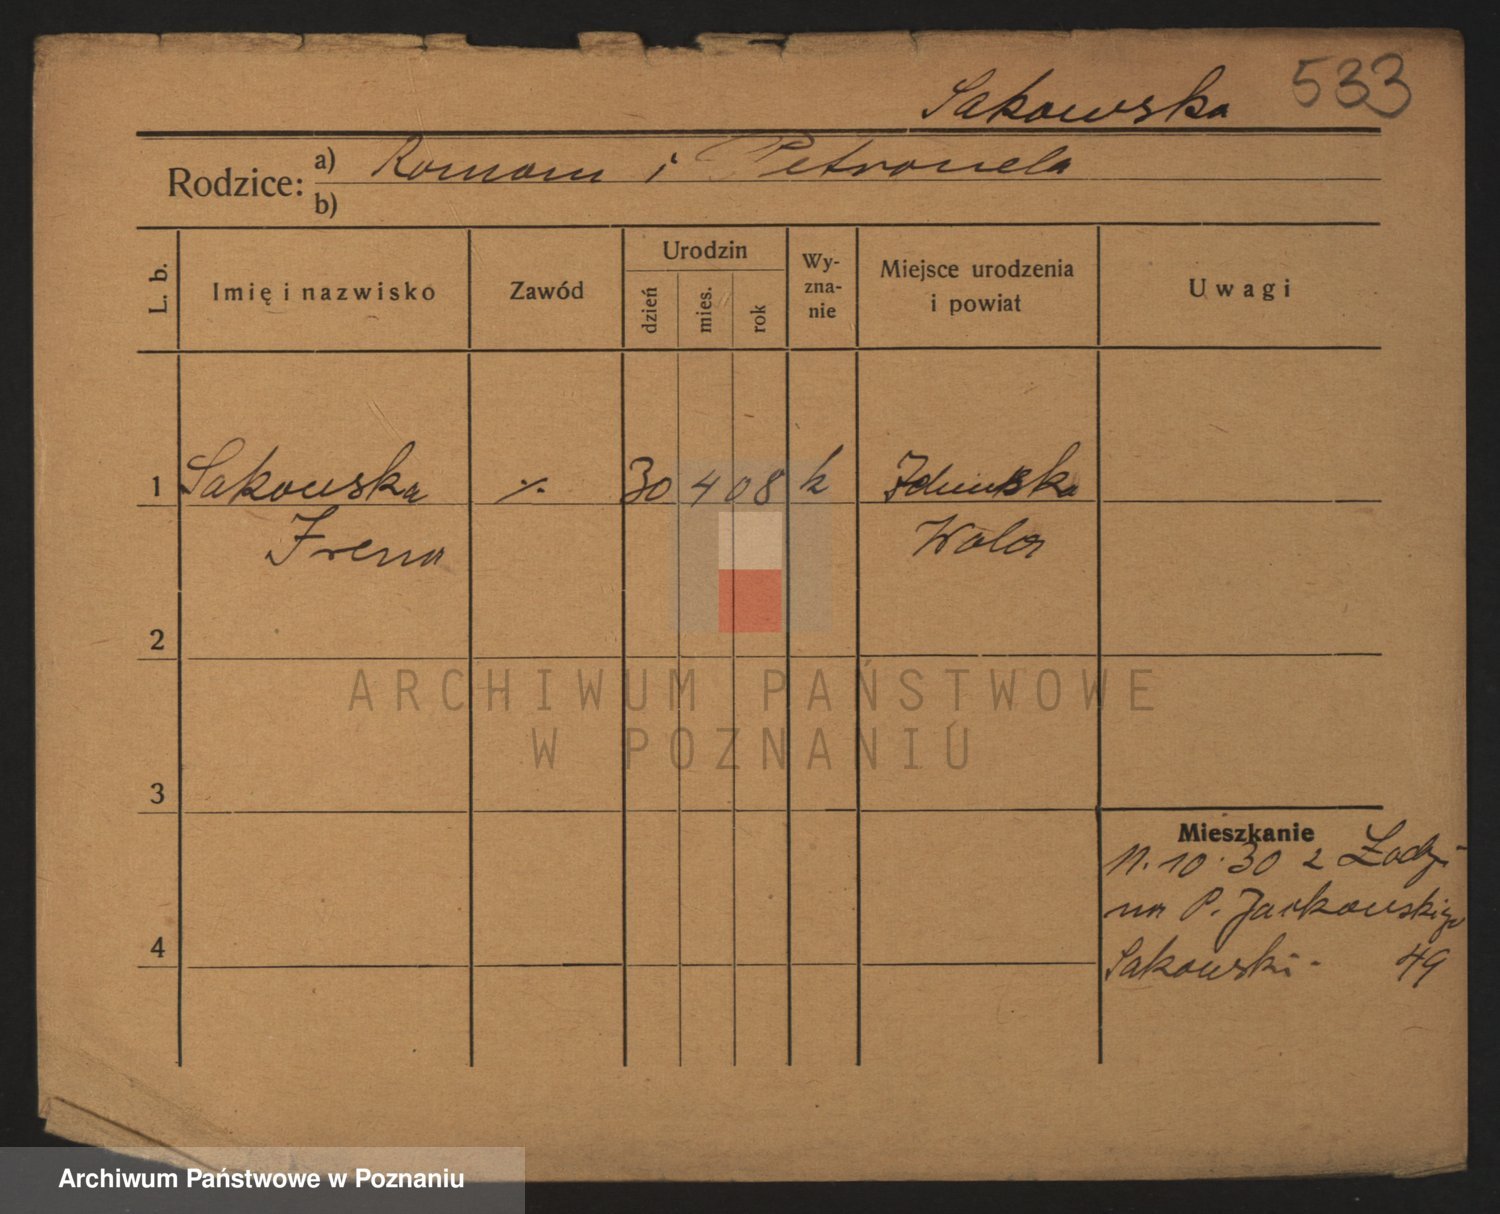 533
Sakowska
Rodzice: a) Roman i Petronela
b)
L. b.
Imię i nazwisko
Zawód
Urodzin
dzień
mies.
rok
Wy-
zna-
nie
Miejsce urodzenia
i powiat
Uwagi
1 Sakowska % 30 4 08 k Zduńska
Irena Wola
2
3
4
Mieszkanie
11.10.30 z Łodzi
na P. Jackowskiego
Sakowski - 49
ARCHIWUM PAŃSTWOWE
W POZNANIU
Archiwum Państwowe w Poznaniu